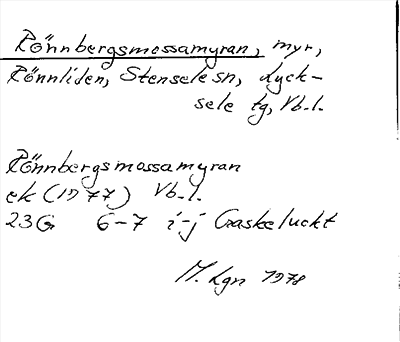 Rönnbergsmossamyran, myr,
Rönnliden, Stensele sn, Lyck-
sele tg, Vb.l.
Rönnbergsmossamyran
ek (1977) Vb.l.
23G 6-7 i-j Gaskeluckt
M. Lgn 1978